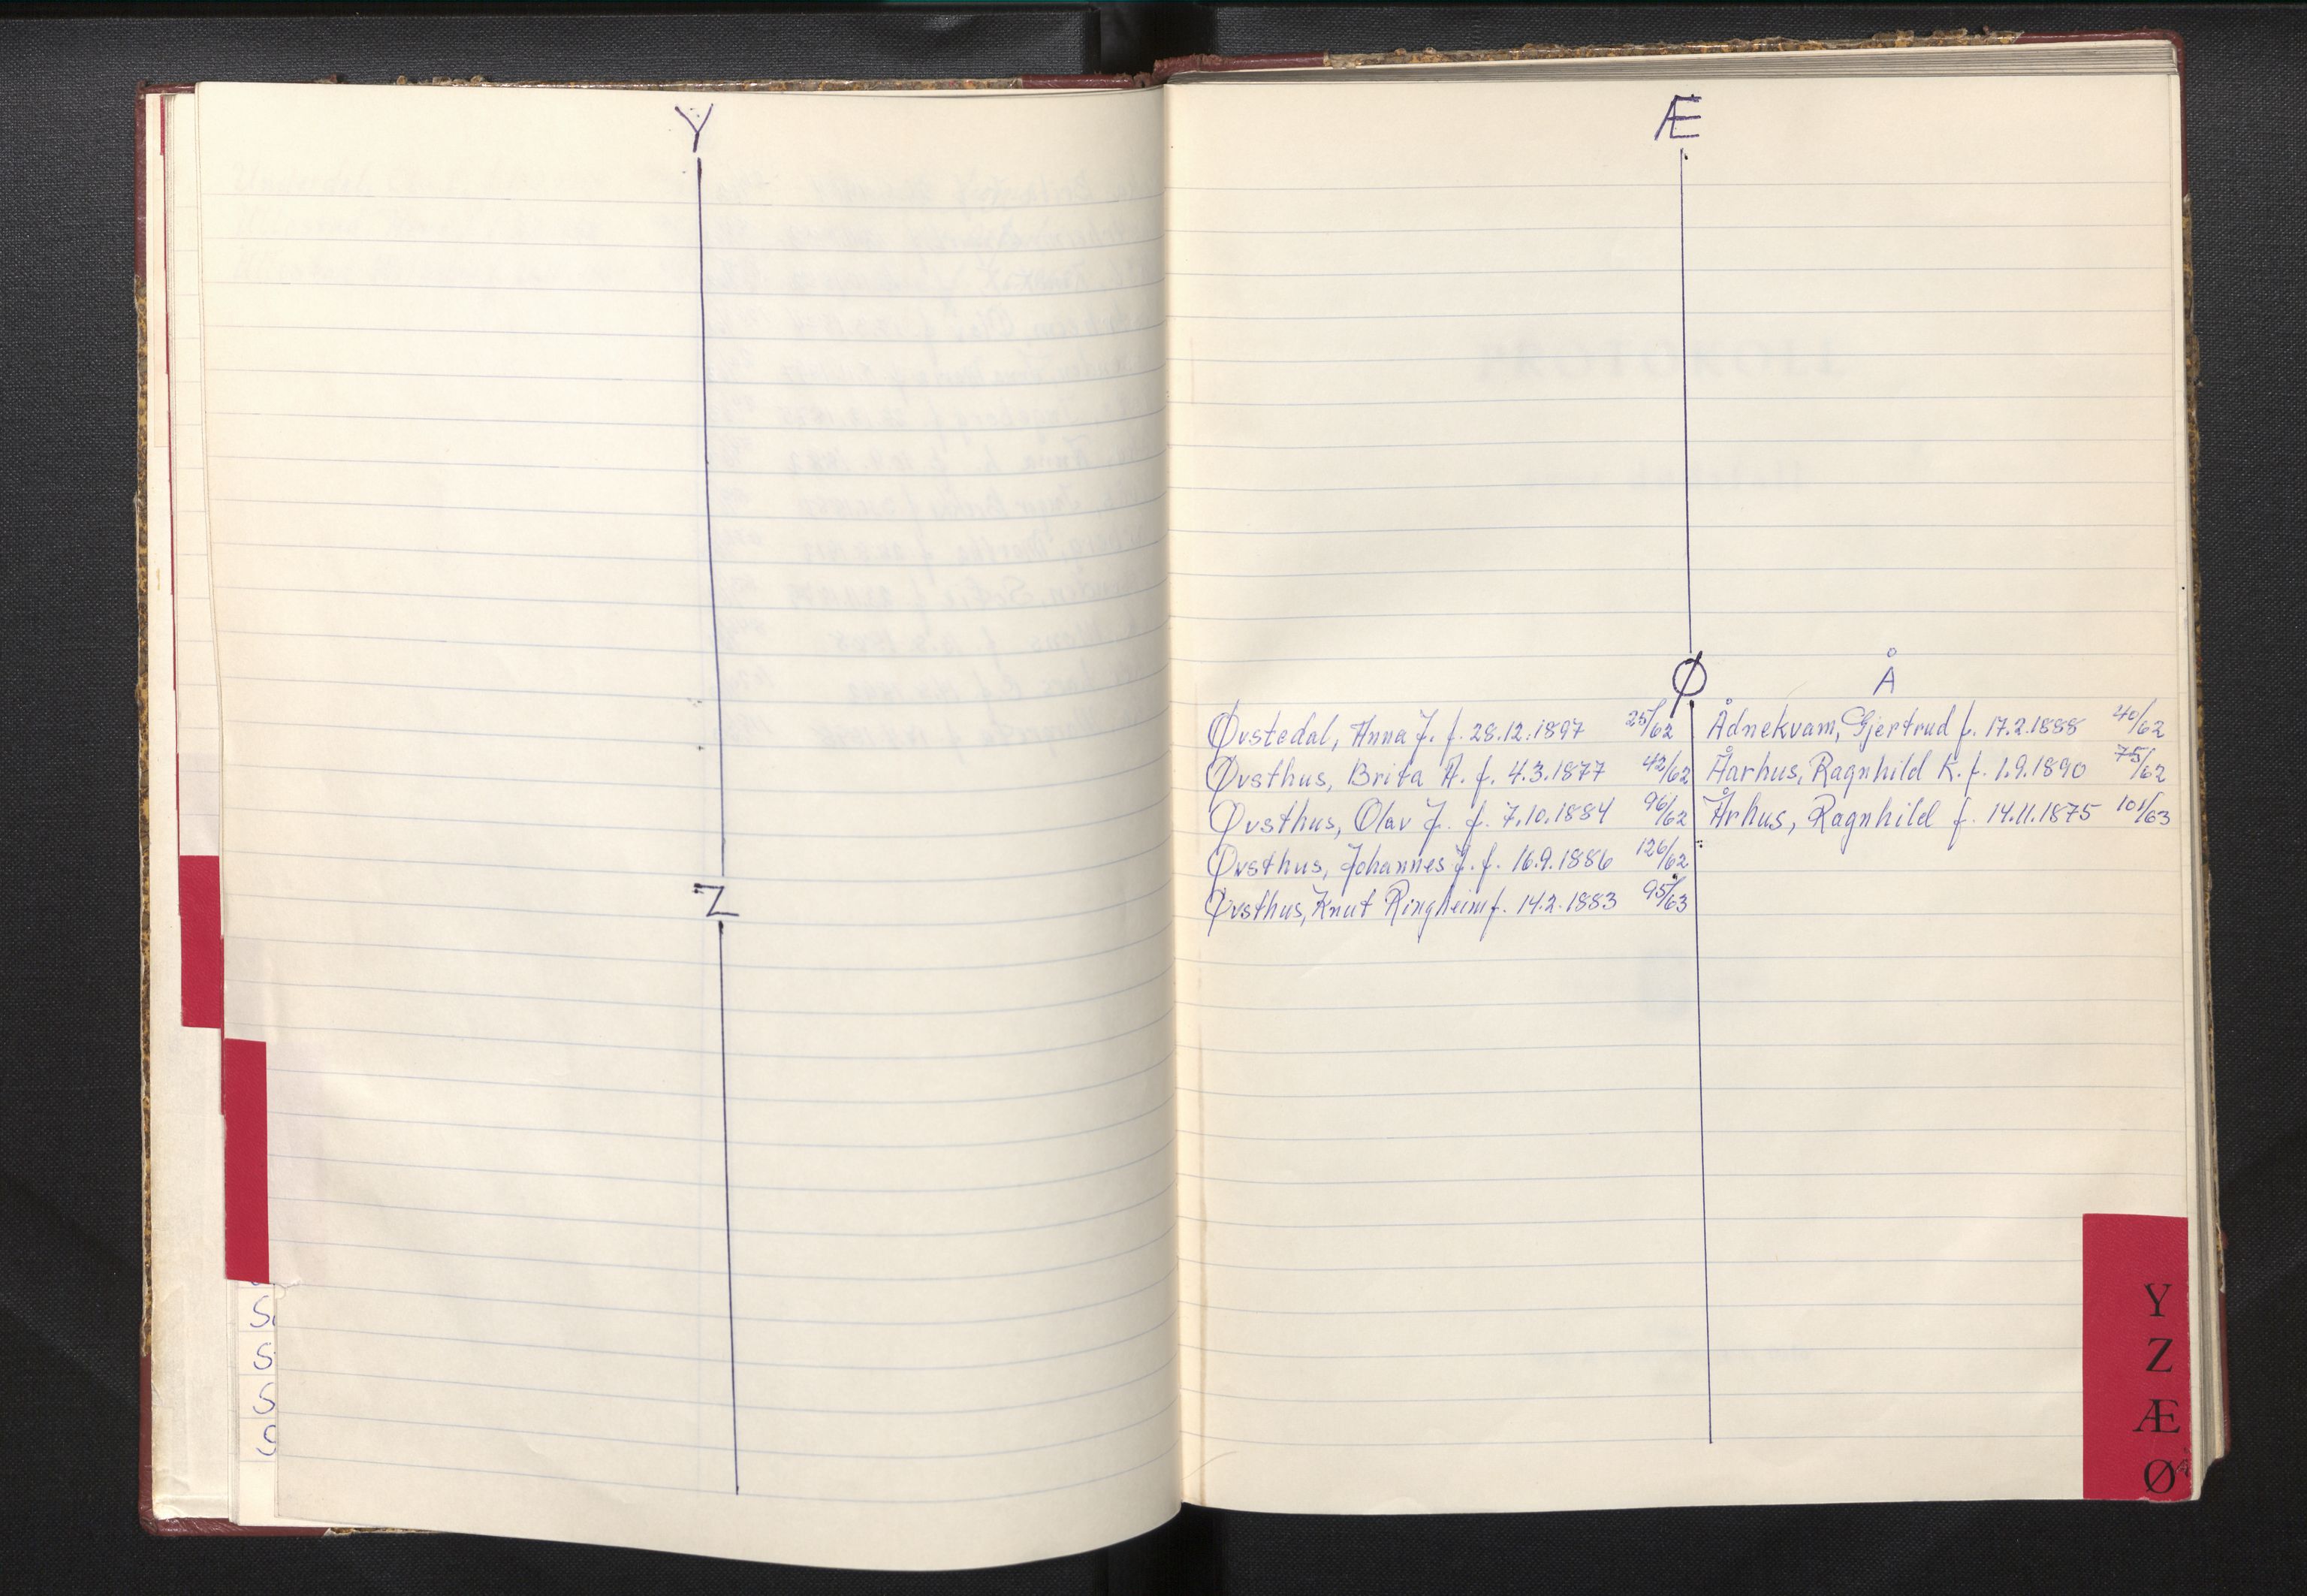 Y
Z
Æ
Ø
Øvstedal, Anna J. f. 28.12.1897 25/62
Øvsthus, Brita A. f. 4.3.1877 42/62
Øvsthus, Olav J. f. 7.10.1884 96/62
Øvsthus, Johannes J. f. 16.9.1886 126/62
Øvsthus, Knut Ringheim f. 14.2.1883 95/63
Å
Ådnekvam, Gjertrud f. 17.2.1888 40/62
Århus, Ragnhild K. f. 1.9.1890 75/62
Århus, Ragnhild f. 14.11.1875 101/63
S
S
S
Y
Z
Æ
Ø Å